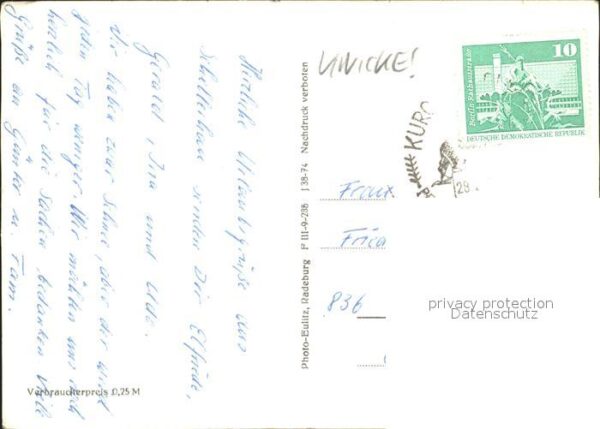 Herzliche Urlaubsgrüße aus
Schellerhau senden Dir Elfriede,
Gerard, Ina und Udo.
Wir haben zwar Schnee, aber der wird
jeden Tag weniger. Wir möchten uns auch
herzlich für die Sachen bedanken. Viele
Grüße an Günter u. Fam.
Verbraucherpreis 0,25 M
Photo-Eulitz, Radeburg P III-9-238 J 38-74 Nachdruck verboten
10
Berlin Rathausstraße
DEUTSCHE DEMOKRATISCHE REPUBLIK
KURO
29.
836
privacy protection
Datenschutz